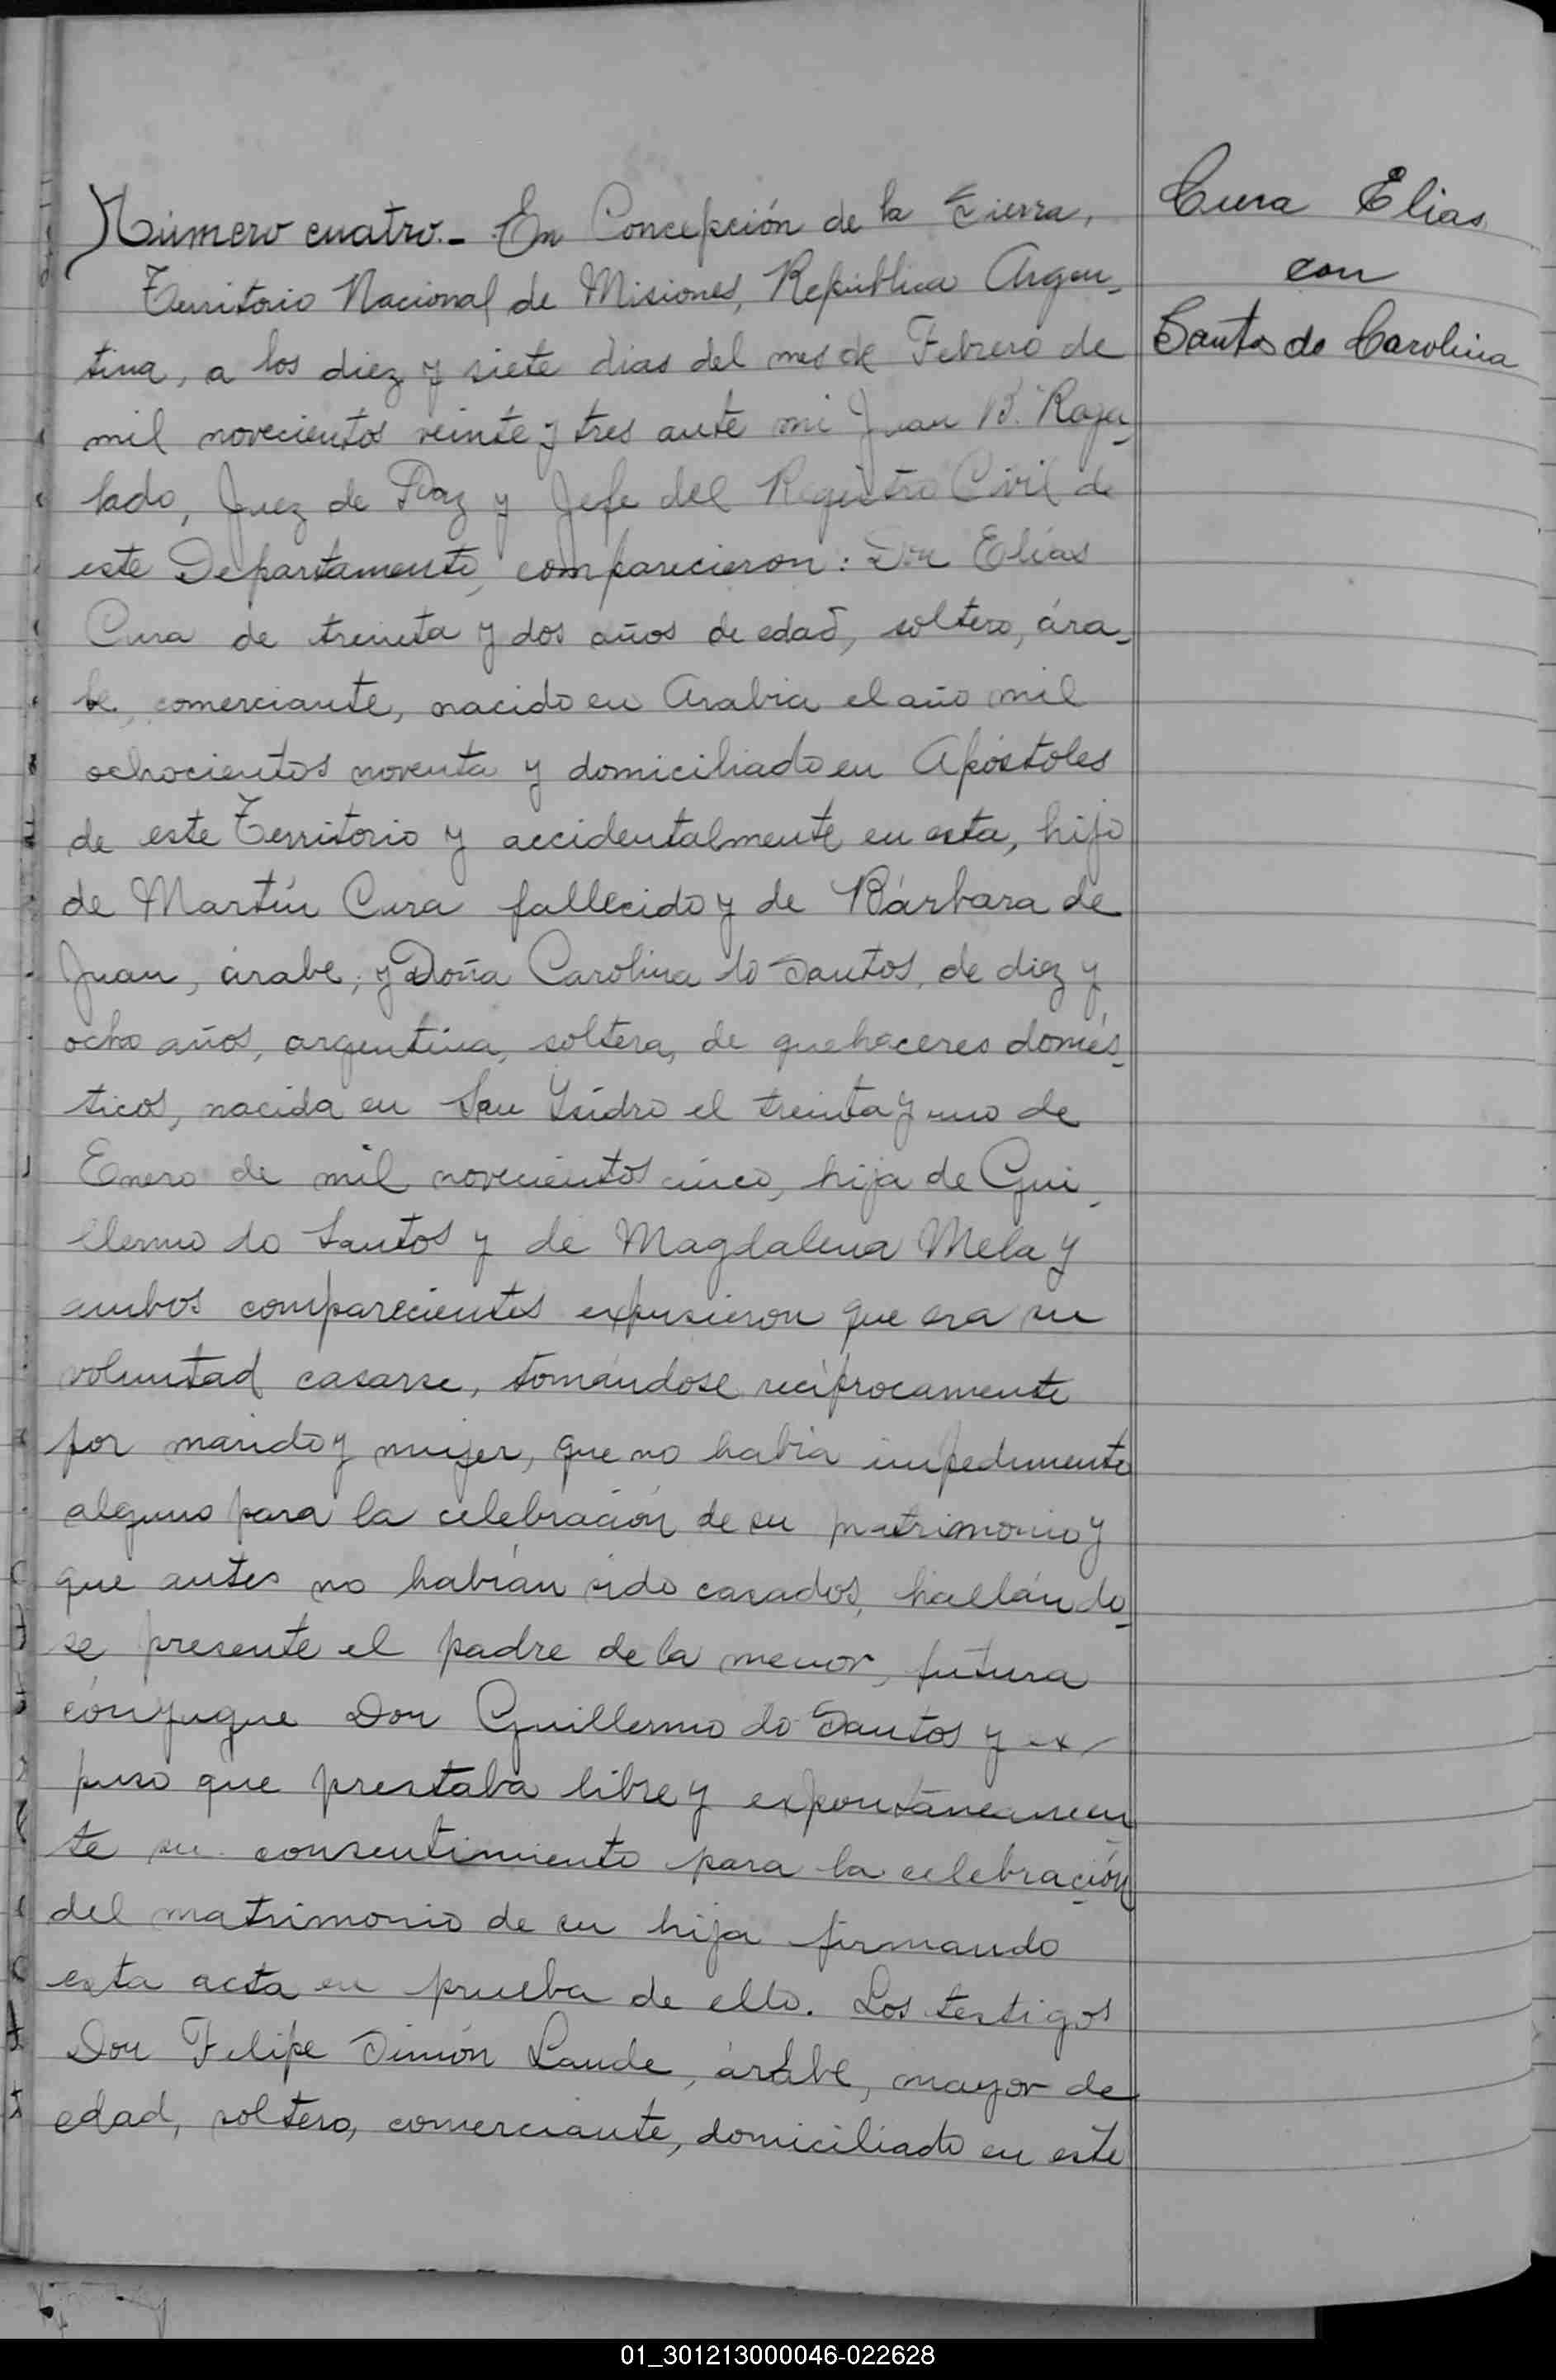 Número cuatro.- En Concepción de la Sierra,
Territorio Nacional de Misiones, República Argen-
tina, a los diez y siete dias del mes de Febrero de
mil novecientos veinte y tres ante mi Juan B. Raga-
lado, Juez de Paz y Jefe del Registro Civil de
este Departamento, comparecieron: Don Elías
Cura de treinta y dos años de edad, soltero, ára-
be, comerciante, nacido en Arabia el año mil
ochocientos noventa y domiciliado en Apóstoles
de este Territorio y accidentalmente en esta, hijo
de Martín Cura fallecido y de Bárbara de
Juan, árabe; y Doña Carolina do Santos, de diez y
ocho años, argentina, soltera, de quehaceres domés-
ticos, nacida en San Ysidro el treinta y uno de
Enero de mil novecientos cinco, hija de Gui-
llermo do Santos y de Magdalena Mela y
ambos comparecientes expusieron que era su
voluntad casarse, tomándose recíprocamente
por marido y mujer, que no había impedimento
alguno para la celebración de su matrimonio y
que antes no habían sido casados, hallándo-
se presente el padre de la menor, futura
cónyugue Don Guillermo do Santos y ex-
puso que prestaba libre y expontáneamen
te su consentimiento para la celebración
del matrimonio de su hija firmando
esta acta en prueba de ello. Los testigos
Don Felipe Simón Laude, árabe, mayor de
edad, soltero, comerciante, domiciliado en este
Cura Elias
con
Santos do Carolina
01_301213000046-022628